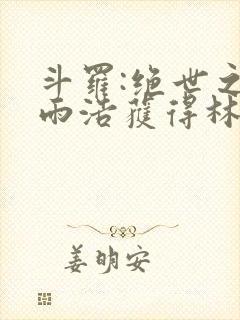 斗羅:絕世之
雨浩獲得林
姜明安